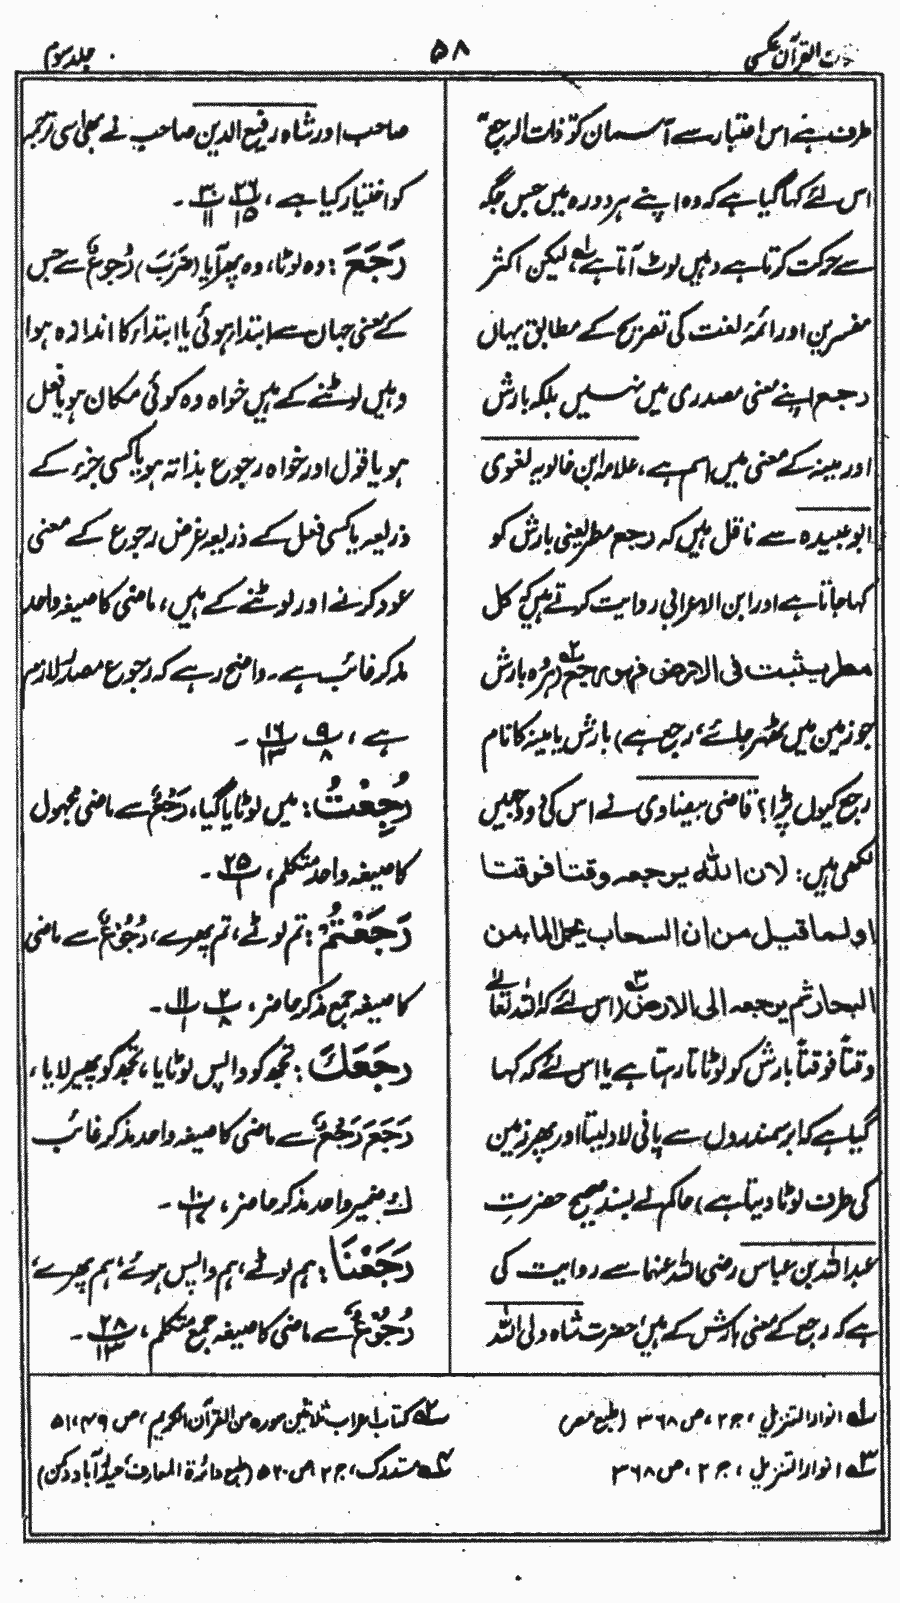 لغات القرآن عکسی
۵۸
جلد سوم
طرف ہے اس اعتبار سے آسمان کو ذات الرجع
اس لئے کہا گیا ہے کہ وہ اپنے ہر دورہ میں جس جگہ
سے حرکت کرتا ہے وہیں لوٹ آتا ہے، لیکن اکثر
مفسرین اور ائمہ لغت کی تصریح کے مطابق یہاں
رجع اپنے معنی مصدری میں نہیں بلکہ بارش
اور مینہ کے معنی میں اسم ہے، علامہ ابن خالویہ لغوی
ابو عبیدہ سے ناقل ہیں کہ رجع مطر یعنی بارش کو
کہا جاتا ہے اور ابن الاعرابی روایت کرتے ہیں کہ کل
مطر یثبت فی الارض فهو رجع (ہر وہ بارش
جو زمین میں ٹھہر جائے، رجع ہے) بارش یا مینہ کا نام
رجع کیوں پڑا؟ قاضی بیضاوی نے اس کی دو وجہیں
لکھی ہیں: لان الله یرجعه وقتا فوقتا
او لما قیل من ان السحاب یحمل الماء من
البحار ثم یرجعه الی الارض (اس لئے کہ اللہ تعالےٰ
وقتاً فوقتاً بارش کو لوٹاتا رہتا ہے یا اس لئے کہ کہا
گیا ہے کہ ابر سمندروں سے پانی لاد لیتا اور پھر زمین
کی طرف لوٹا دیتا ہے) حاکم نے بسند صحیح حضرت
عبداللہ بن عباس رضی اللہ عنہما سے روایت کی
ہے کہ رجع کے معنی بارش کے ہیں، حضرت شاہ ولی اللہ
صاحب اور شاہ رفیع الدین صاحب نے بھی اسی ترجمہ
کو اختیار کیا ہے، ۳۶/۱۵ ۳۰/۱۱ ۔
رَجَعَ: وہ لوٹا، وہ پھر آیا (ضَرَبَ) رُجُوعٌ سے جس
کے معنی جہاں سے ابتدا ہوئی یا ابتداء کا اندازہ ہوا
وہیں لوٹنے کے ہیں خواہ وہ کوئی مکان ہو یا فعل
ہو یا قول اور خواہ رجوع بذاتہ ہو یا کسی جزء کے
ذریعہ یا کسی فعل کے ذریعہ غرض رجوع کے معنی
عود کرنے اور لوٹنے کے ہیں، ماضی کا صیغہ واحد
مذکر غائب ہے۔ واضح رہے کہ رجوع مصدر لازم
ہے، ۹/۸ ۱۶/۱۳ ۔
رُجِعْتُ: میں لوٹایا گیا، رَجْعٌ سے ماضی مجہول
کا صیغہ واحد متکلم، ۲۵/۱ ۔
رَجَعْتُمْ: تم لوٹے، تم پھرے، رُجُوْعٌ سے ماضی
کا صیغہ جمع مذکر حاضر، ۲/۸ ۱۱/۱ ۔
رَجَعَكَ: تجھ کو واپس لوٹایا، تجھ کو پھیر لایا،
رَجَعَ رَجْعٌ سے ماضی کا صیغہ واحد مذکر غائب
كَ ضمیر واحد مذکر حاضر، ۱۰/۱۷ ۔
رَجَعْنَا: ہم لوٹے، ہم واپس ہوئے، ہم پھرے،
رُجُوْعٌ سے ماضی کا صیغہ جمع متکلم، ۲۸/۱۳ ۔
۱ انوار التنزیل، ج ۲، ص ۳۶۸ (طبع مصر)
۲ کتاب اعراب ثلاثین سورہ من القرآن الکریم، ص ۴۹، ۵۱
۳ انوار التنزیل، ج ۲، ص ۳۶۸
۴ مستدرک، ج ۲ ص ۵۲۰ (طبع دائرة المعارف، حیدرآباد دکن)